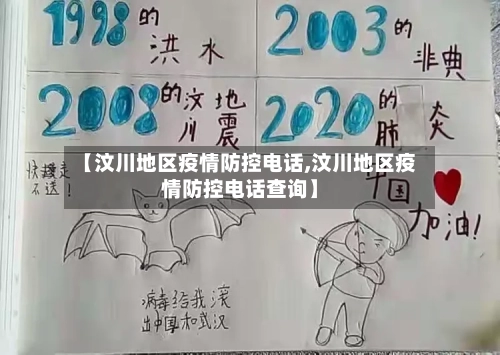 1998的洪水
2003的非典
2008的汶川地震
2020的肺炎
【汶川地区疫情防控电话,汶川地区疫
情防控电话查询】
快走
不送!
中国
加油!
病毒给我滚
出中国和武汉